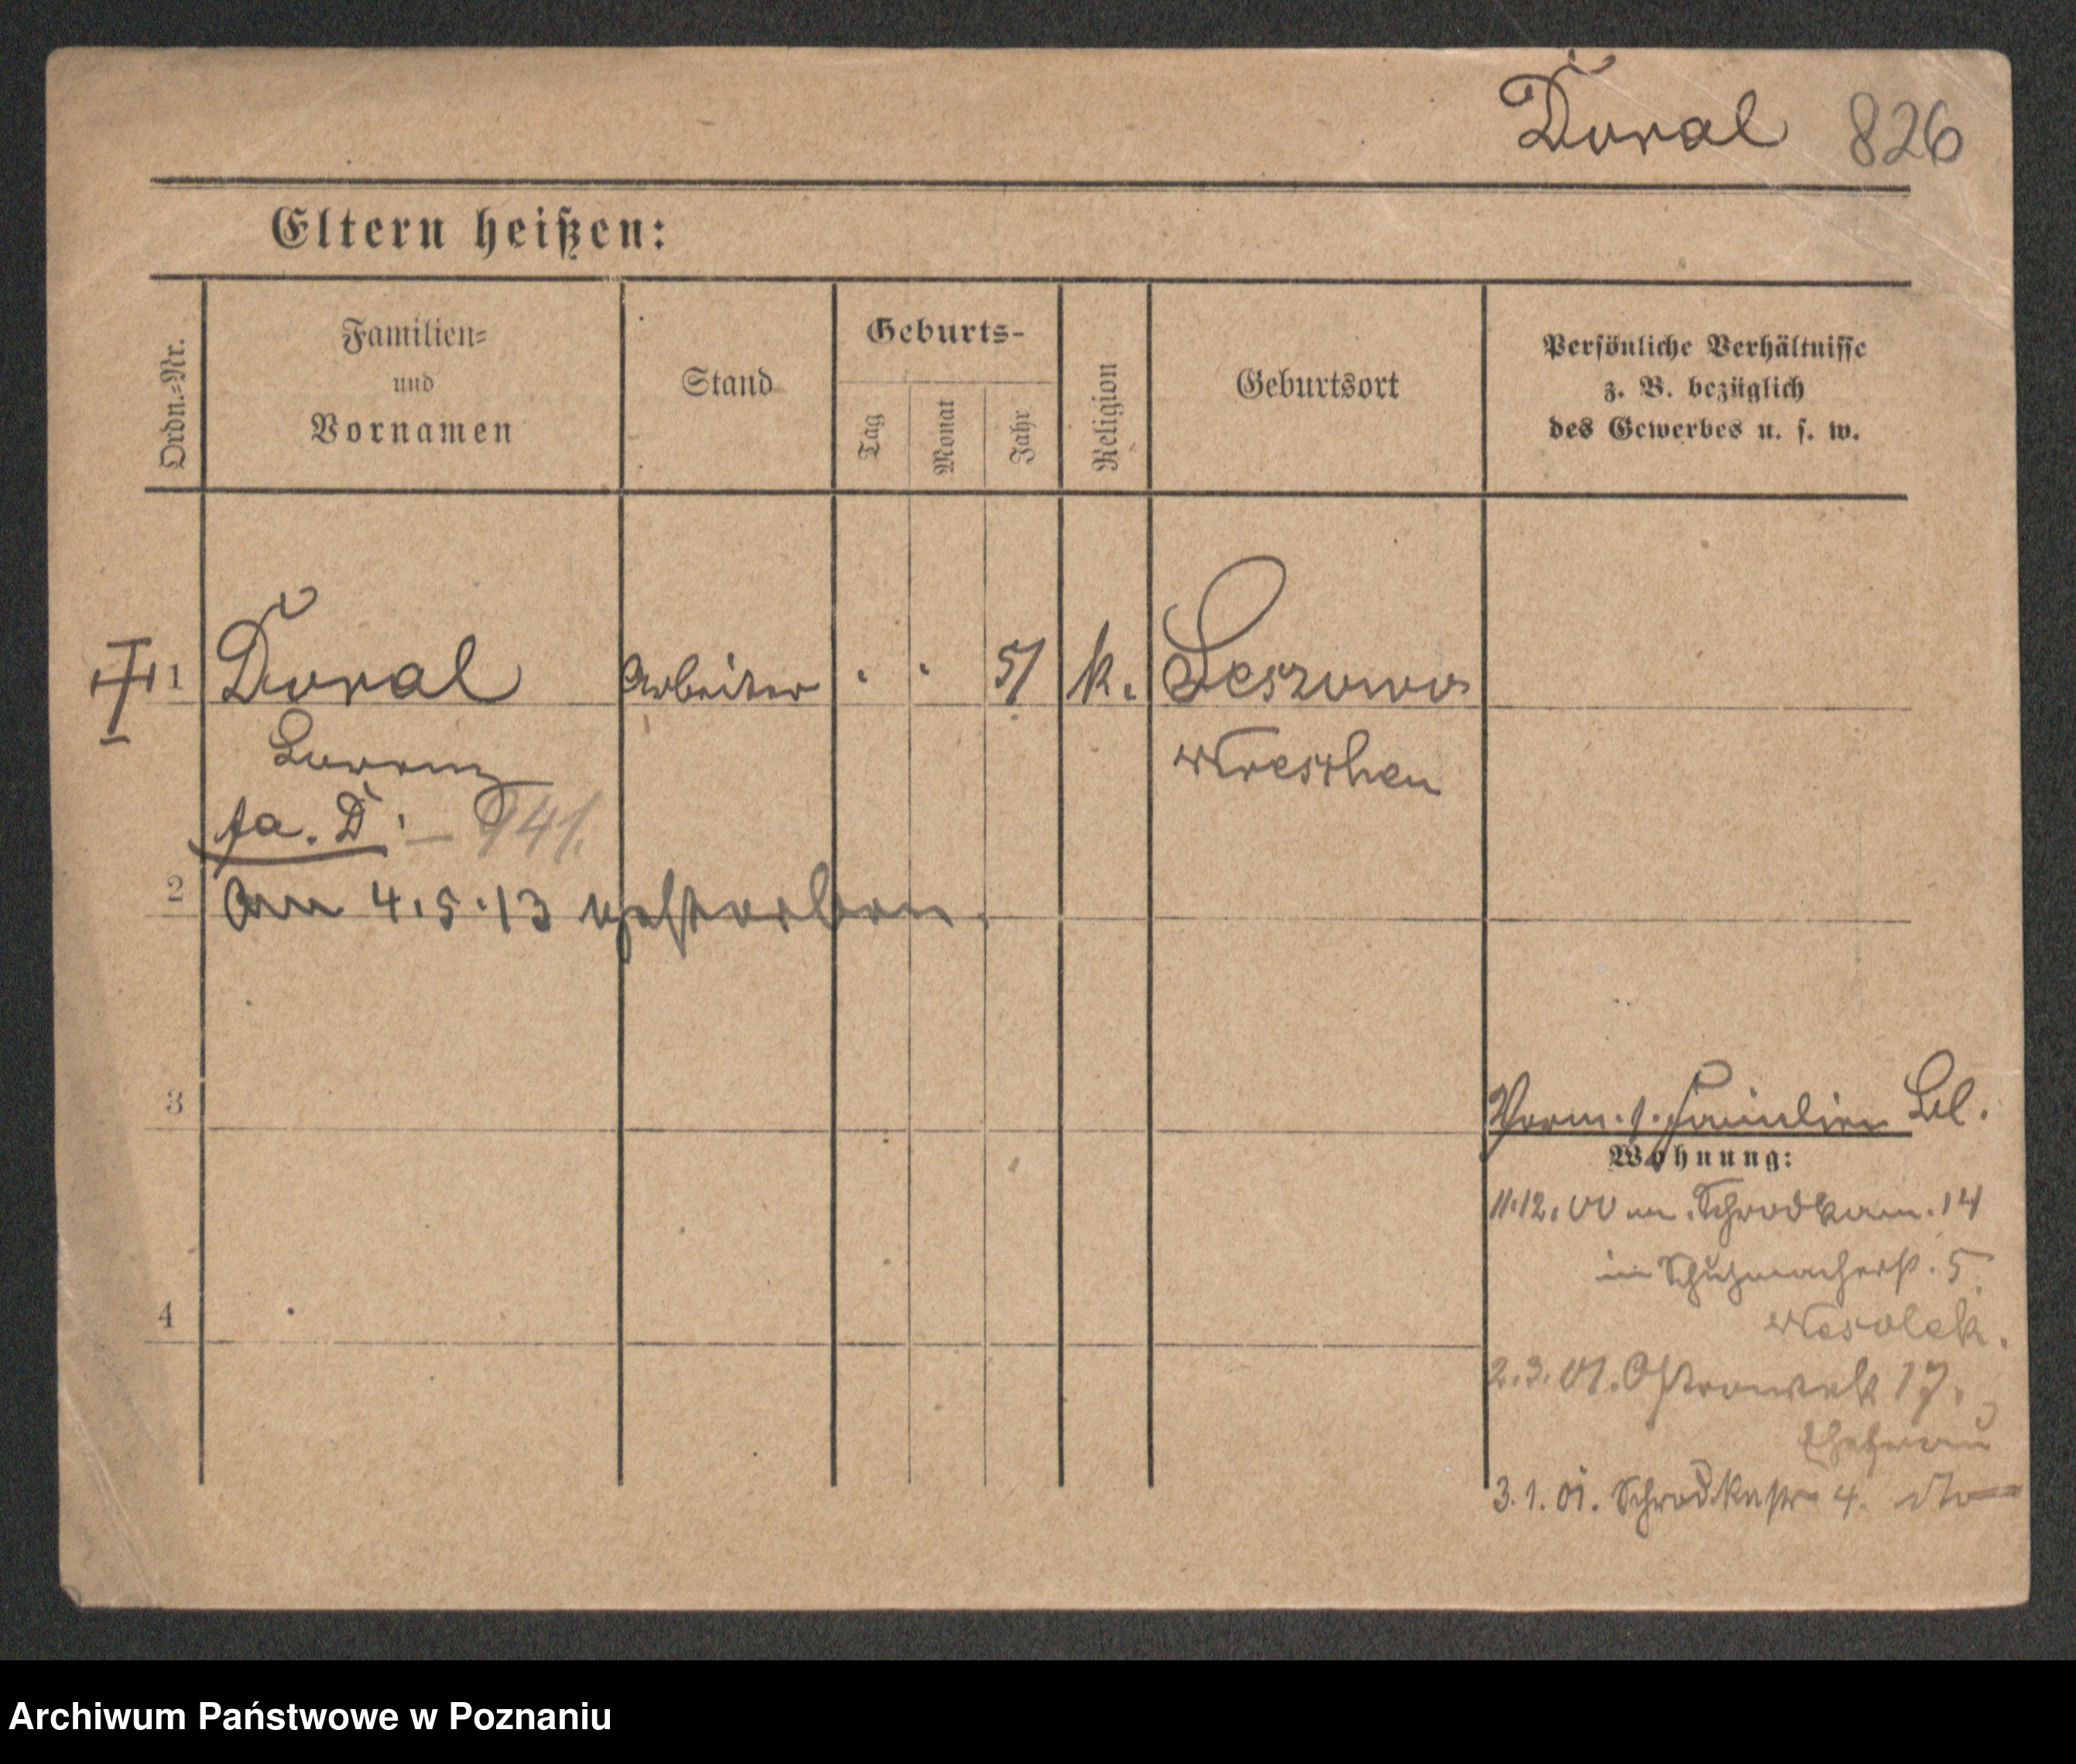 Dural 826
Eltern heißen:
Ordn.=Nr.
Familien=
und
Vornamen
Stand
Geburts-
Tag
Monat
Jahr
Religion
Geburtsort
Persönliche Verhältnisse
z. B. bezüglich
des Gewerbes u. s. w.
1 Dural Arbeiter 51 k.
Lorenz Wreschen
fa. D. — 941.
2 Am 4.5.13 gestorben.
3
Verm. s. Familien Bl.
Wohnung:
11.12.00 14
in Schuhmacherstr. 5
4
Wesolek.
2.3.01. Ostrowek 17.
Ehefrau
3.1.01. Schrodkastr 4. dto
Archiwum Państwowe w Poznaniu